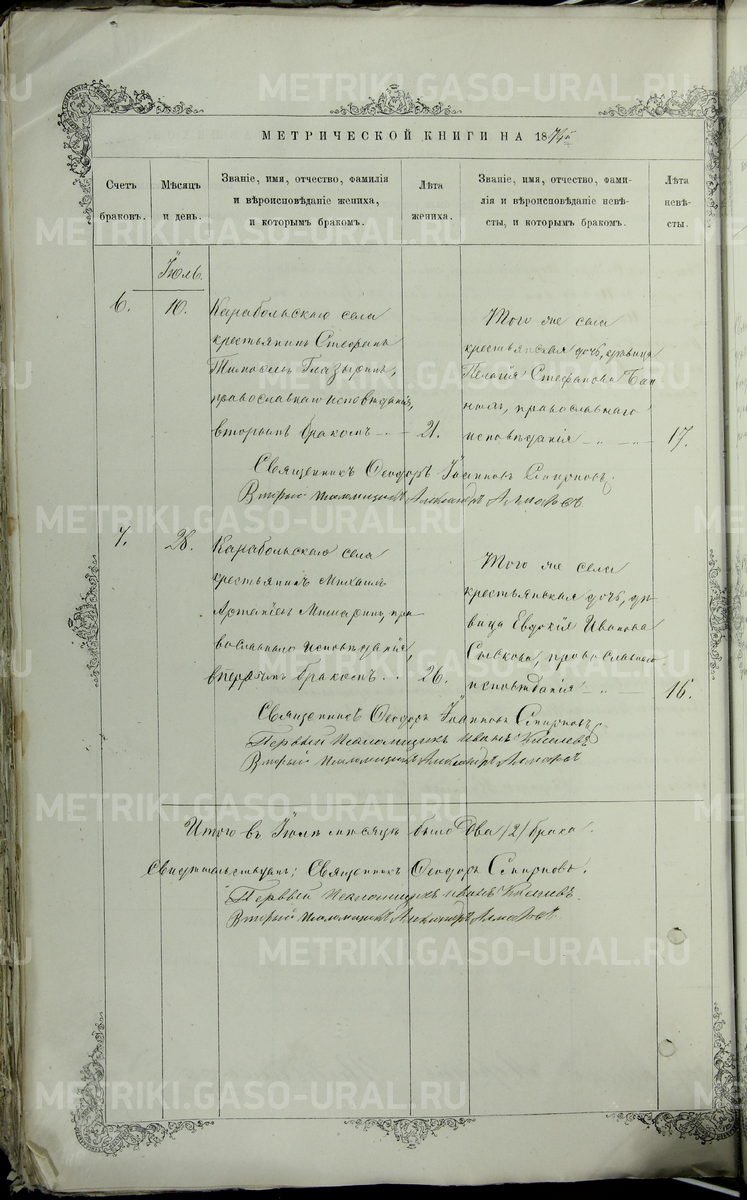 METRIKI.GASO-URAL.RU
МЕТРИЧЕСКОЙ КНИГИ НА 1874й
Счетъ браковъ.
Мѣсяцъ и день.
Званіе, имя, отчество, фамилія и вѣроисповѣданіе жениха, и которымъ бракомъ.
Лѣта жениха.
Званіе, имя, отчество, фамилія и вѣроисповѣданіе невѣсты, и которымъ бракомъ.
Лѣта невѣсты.
Іюль.
6.
10.
Карабольскаго села
крестьянинъ Стефанъ
Глазыринъ,
православнаго исповѣданія,
вторымъ бракомъ
21.
Того же села
крестьянская дочь, дѣвица
Пелагія Стефанова
православнаго
исповѣданія
17.
Священникъ Ѳеодоръ Іоанновъ Смирновъ.
Вторый псаломщикъ Александръ
7.
28.
Карабольскаго села
крестьянинъ Михаилъ
Мишаринъ, пра-
вославнаго исповѣданія,
первымъ бракомъ
26.
Того же села
крестьянская дочь, дѣ-
вица Евдокія Иванова
православнаго
исповѣданія
16.
Священникъ Ѳеодоръ Іоанновъ Смирновъ
Первый псаломщикъ Иванъ Киселевъ
Вторый псаломщикъ Александръ
Итого въ Іюлѣ мѣсяцѣ было два /2/ брака.
Свидѣтельствуемъ: Священникъ Ѳеодоръ Смирновъ.
Первый псаломщикъ Иванъ Киселевъ
Вторый псаломщикъ Александръ